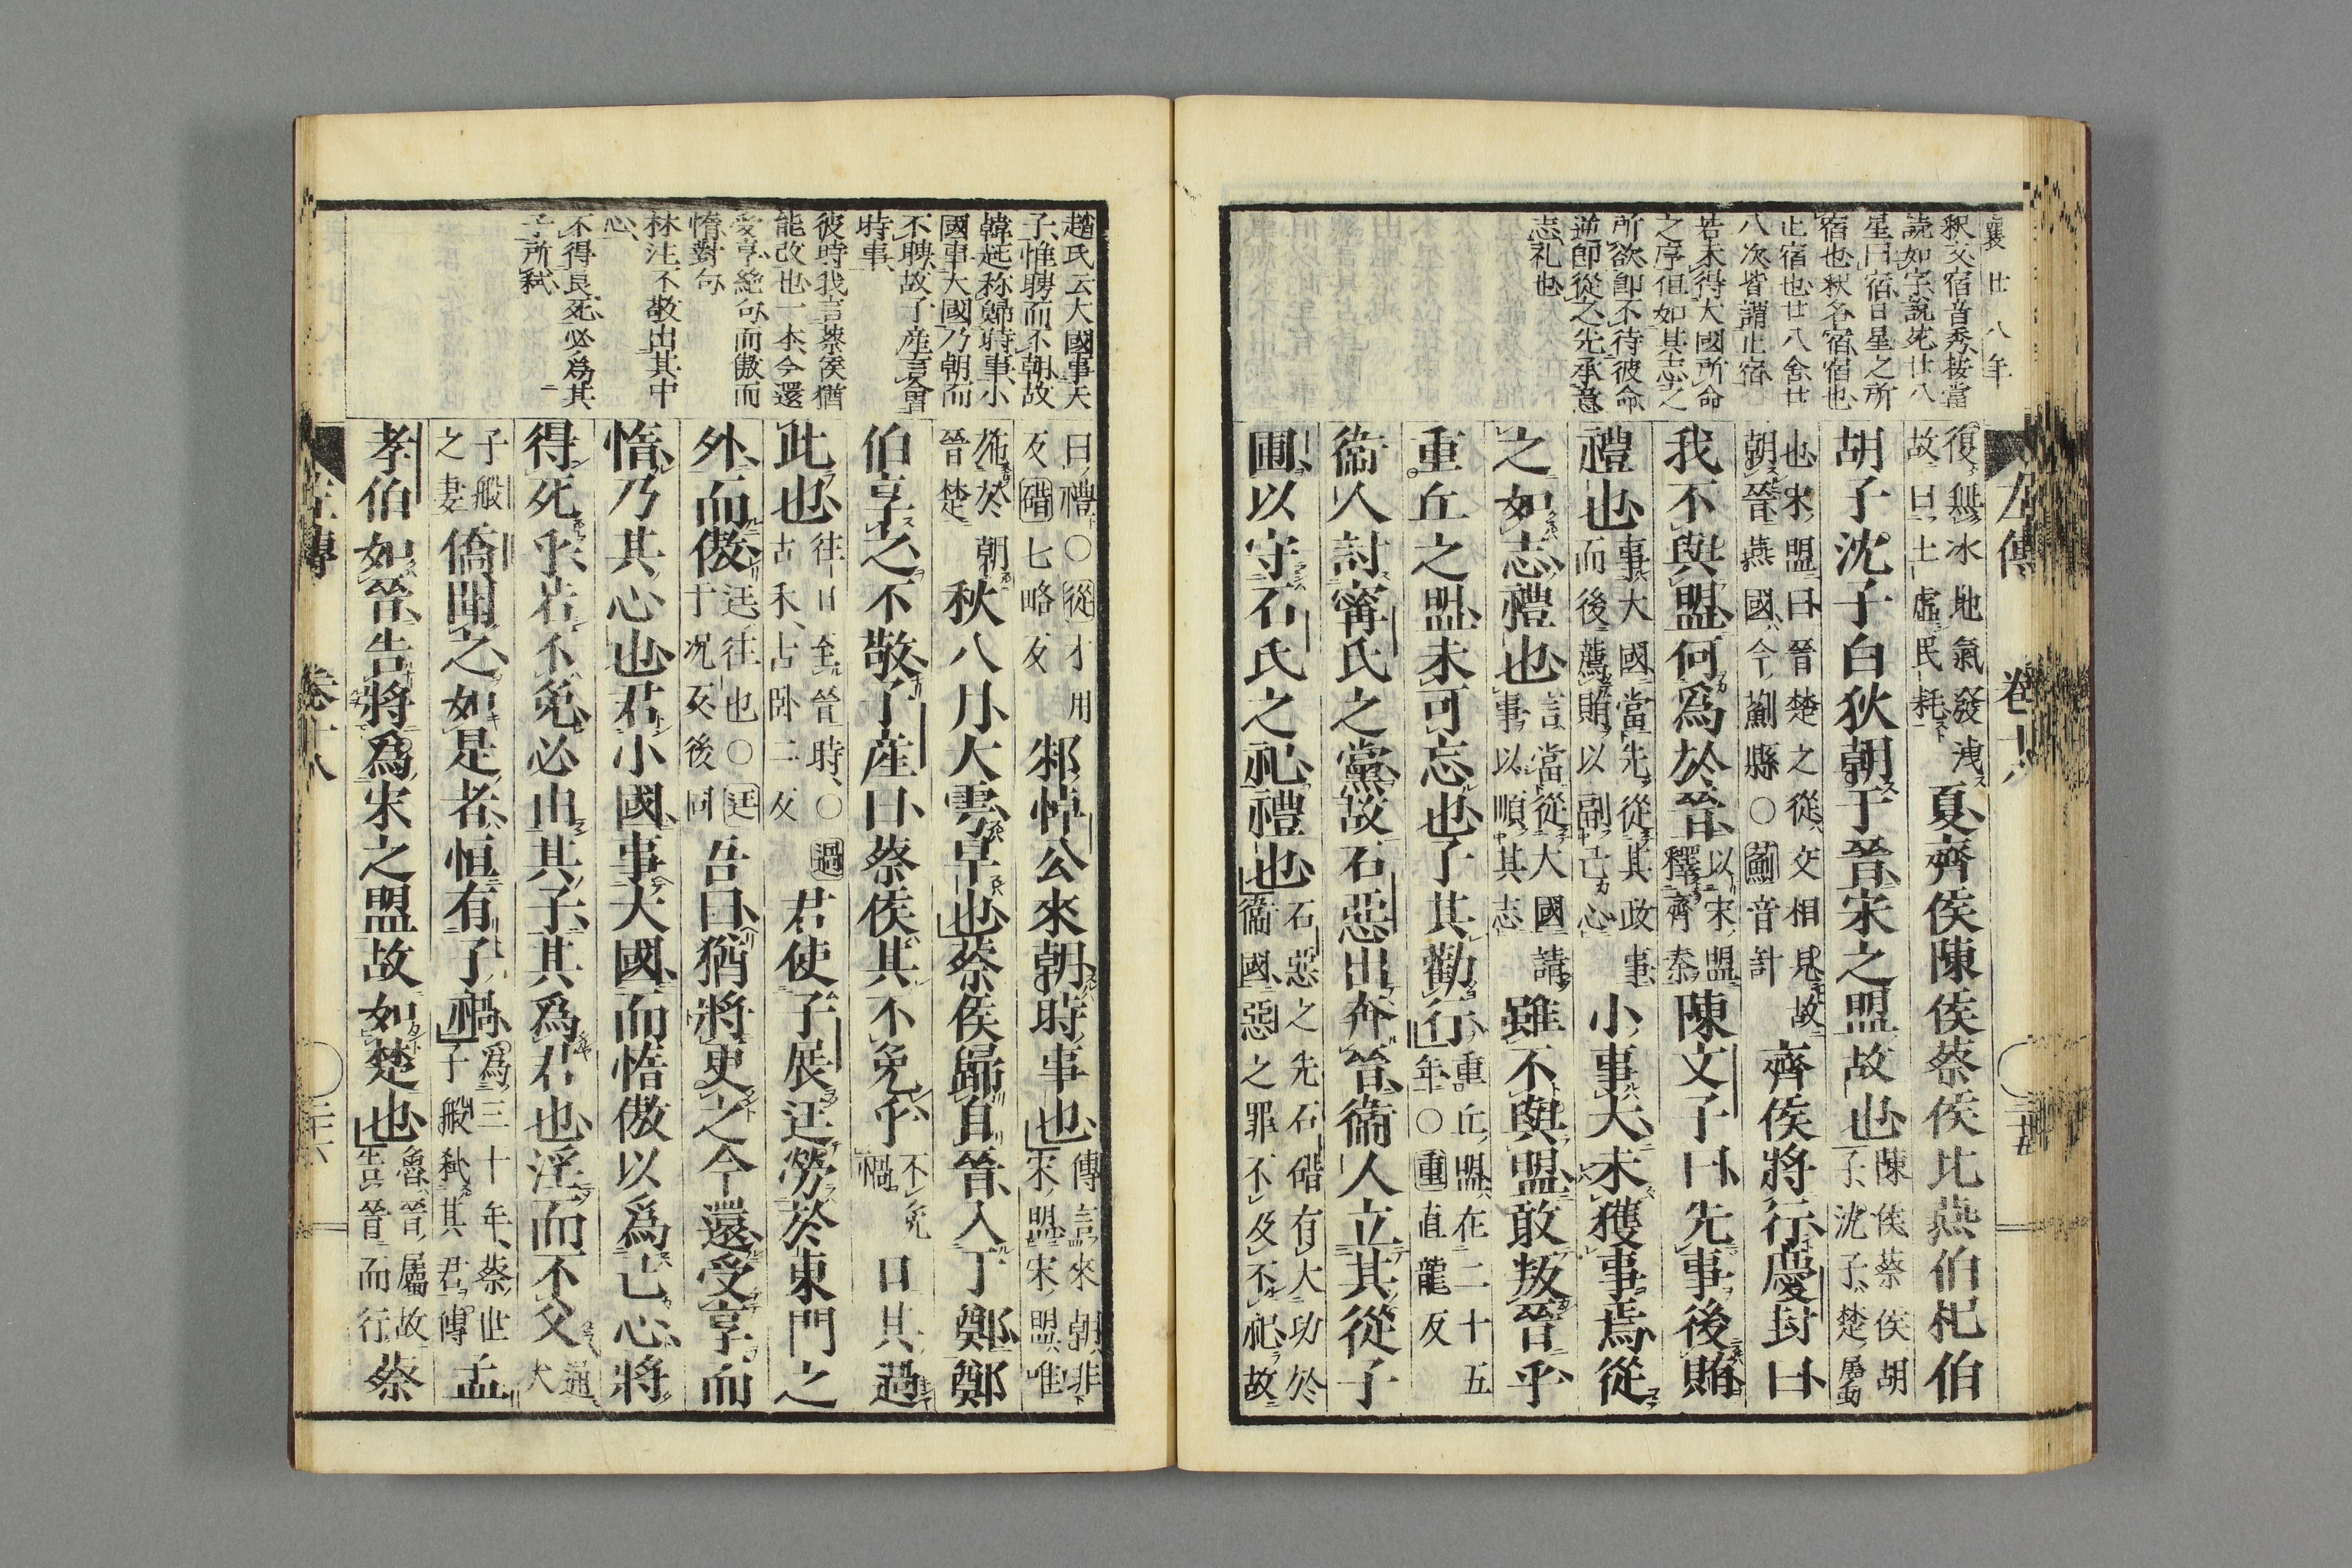 襄廿八年
釈文宿音秀按當
読如字說苑廿八
星曰宿日星之所
宿也秋名宿宿也
止宿也廿八舍廿
八次皆謂止宿
若未得大國所命
之序但如其志之
所欲即不待彼命
逆即從之先承意
志礼也
左傳 卷十八 二十五
復無冰地氣發洩
故曰土虛民耗
夏齊侯陳侯蔡侯北燕伯杞伯
胡子沈子白狄朝于晉宋之盟故也
陳侯蔡侯胡
子沈子楚屬
也宋盟曰晉楚之從交相見故
朝晉燕國今薊縣○薊音計
齊侯將行慶封曰
我不與盟何爲於晉
以宋盟
釋齊秦
陳文子曰先事後賄
禮也
事大國當先從其政事
而後薦賄以副己心
小事大未獲事焉從
之如志禮也
言當從大國請
事以順其志
雖不與盟敢叛晉乎
重丘之盟未可忘也子其勸行
重丘盟在二十五
年○重直龍反
衞人討甯氏之黨故石惡出奔晉衞人立其從子
圃以守石氏之祀禮也
石惡之先石碏有大功於
衞國惡之罪不及不祀故
趙氏云大國事天
子惟聘而不朝故
韓起称歸時事小
國事大國乃朝而
不聘故子産言會
時事
彼時我言蔡侯猶
能改也一本今還
受享絶句而傲而
惰對句
林注不敬出其中
心
不得良死必為其
子所弑
曰禮○從才用
反碏七略反
邾悼公來朝時事也
傳言來朝非
宋盟宋盟唯
施於朝
晉楚
秋八月大雩旱也蔡侯歸自晉入于鄭鄭
伯享之不敬子産曰蔡侯其不免乎
不免
禍
日其過
此也
往日至晉時○過
古禾古臥二反
君使子展迋勞於東門之
外而傲
迋往也○迋
于况反後同
吾曰猶將更之今還受享而
惰乃其心也君小國事大國而惰傲以爲己心將
得死乎若不免必由其子其爲君也淫而不父
通
大
子般
之妻
僑聞之如是者恒有子禍
爲三十年蔡世
子般弑其君傳
孟
孝伯如晉告將爲宋之盟故如楚也
魯晉屬故
告晉而行
蔡
左傳 卷十八 二十六